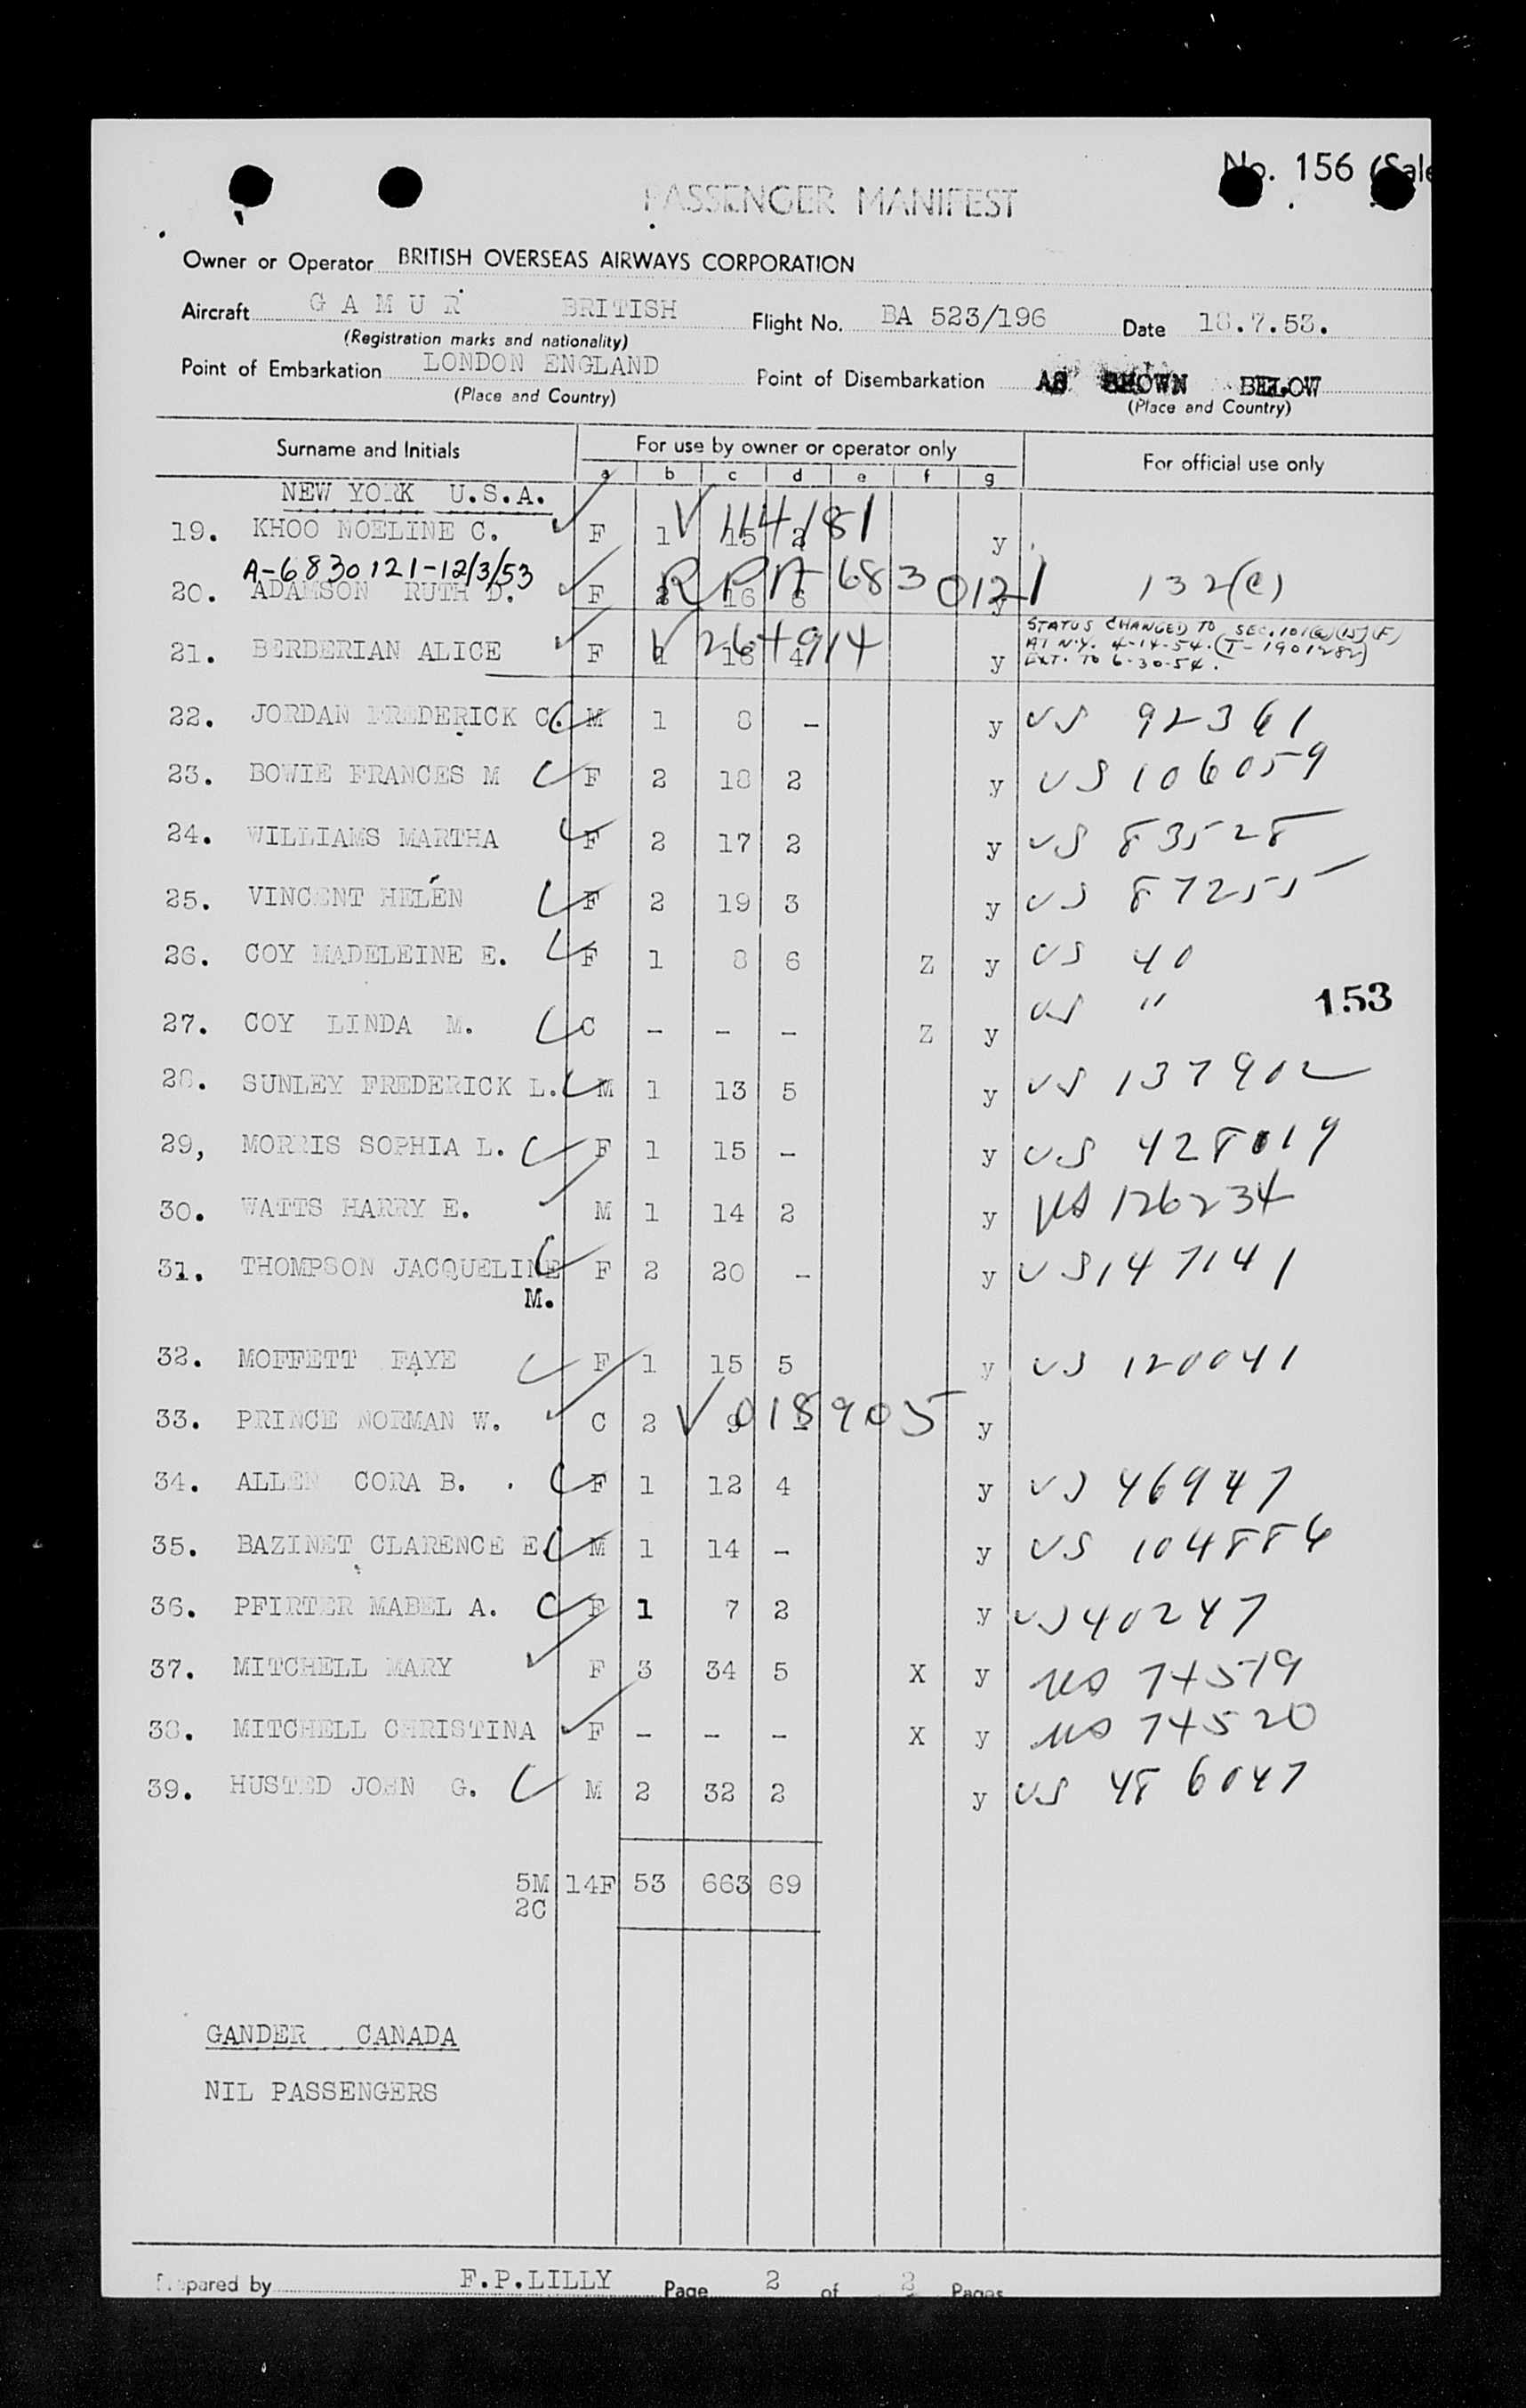 No. 156 (Sale
PASSENGER MANIFEST
Owner or Operator BRITISH OVERSEAS AIRWAYS CORPORATION
Aircraft G A M U R BRITISH Flight No. BA 523/196 Date 18.7.53.
(Registration marks and nationality)
Point of Embarkation LONDON ENGLAND Point of Disembarkation AS SHOWN BELOW
(Place and Country) (Place and Country)
Surname and Initials For use by owner or operator only For official use only
a b c d e f g
NEW YORK U.S.A.
19. KHOO NOELINE C. F 1 15 2 y V 114181
A-6830121-12/3/53
20. ADAMSON RUTH D. F 16 6 y RPA 6830121 132(c)
STATUS CHANGED TO SEC. 101(a)(15)(F)
21. BERBERIAN ALICE F 1 16 4 y V 264914 AT N.Y. 4-14-54. (T-1901282)
EXT. TO 6-30-54.
22. JORDAN FREDERICK C. M 1 8 - y US 92361
23. BOWIE FRANCES M F 2 18 2 y US 106059
24. WILLIAMS MARTHA F 2 17 2 y US 83528
25. VINCENT HELEN F 2 19 3 y US 87255
26. COY MADELEINE E. F 1 8 6 Z y US 40
27. COY LINDA M. C - - - Z y US " 153
28. SUNLEY FREDERICK L. M 1 13 5 y US 137902
29, MORRIS SOPHIA L. F 1 15 - y US 428019
30. WATTS HARRY E. M 1 14 2 y US 126234
31. THOMPSON JACQUELINE F 2 20 - y US 147141
M.
32. MOFFETT FAYE F 1 15 5 y US 120041
33. PRINCE NORMAN W. C 2 9 - y V 018905
34. ALLEN CORA B. F 1 12 4 y US 46947
35. BAZINET CLARENCE E. M 1 14 - y US 104886
36. PFIRTER MABEL A. F 1 7 2 y US 40247
37. MITCHELL MARY F 3 34 5 X y US 74519
38. MITCHELL CHRISTINA F - - - X y US 74520
39. HUSTED JOHN G. M 2 32 2 y US 486047
5M 14F 53 663 69
2C
GANDER CANADA
NIL PASSENGERS
Prepared by F.P.LILLY Page 2 of 2 Pages